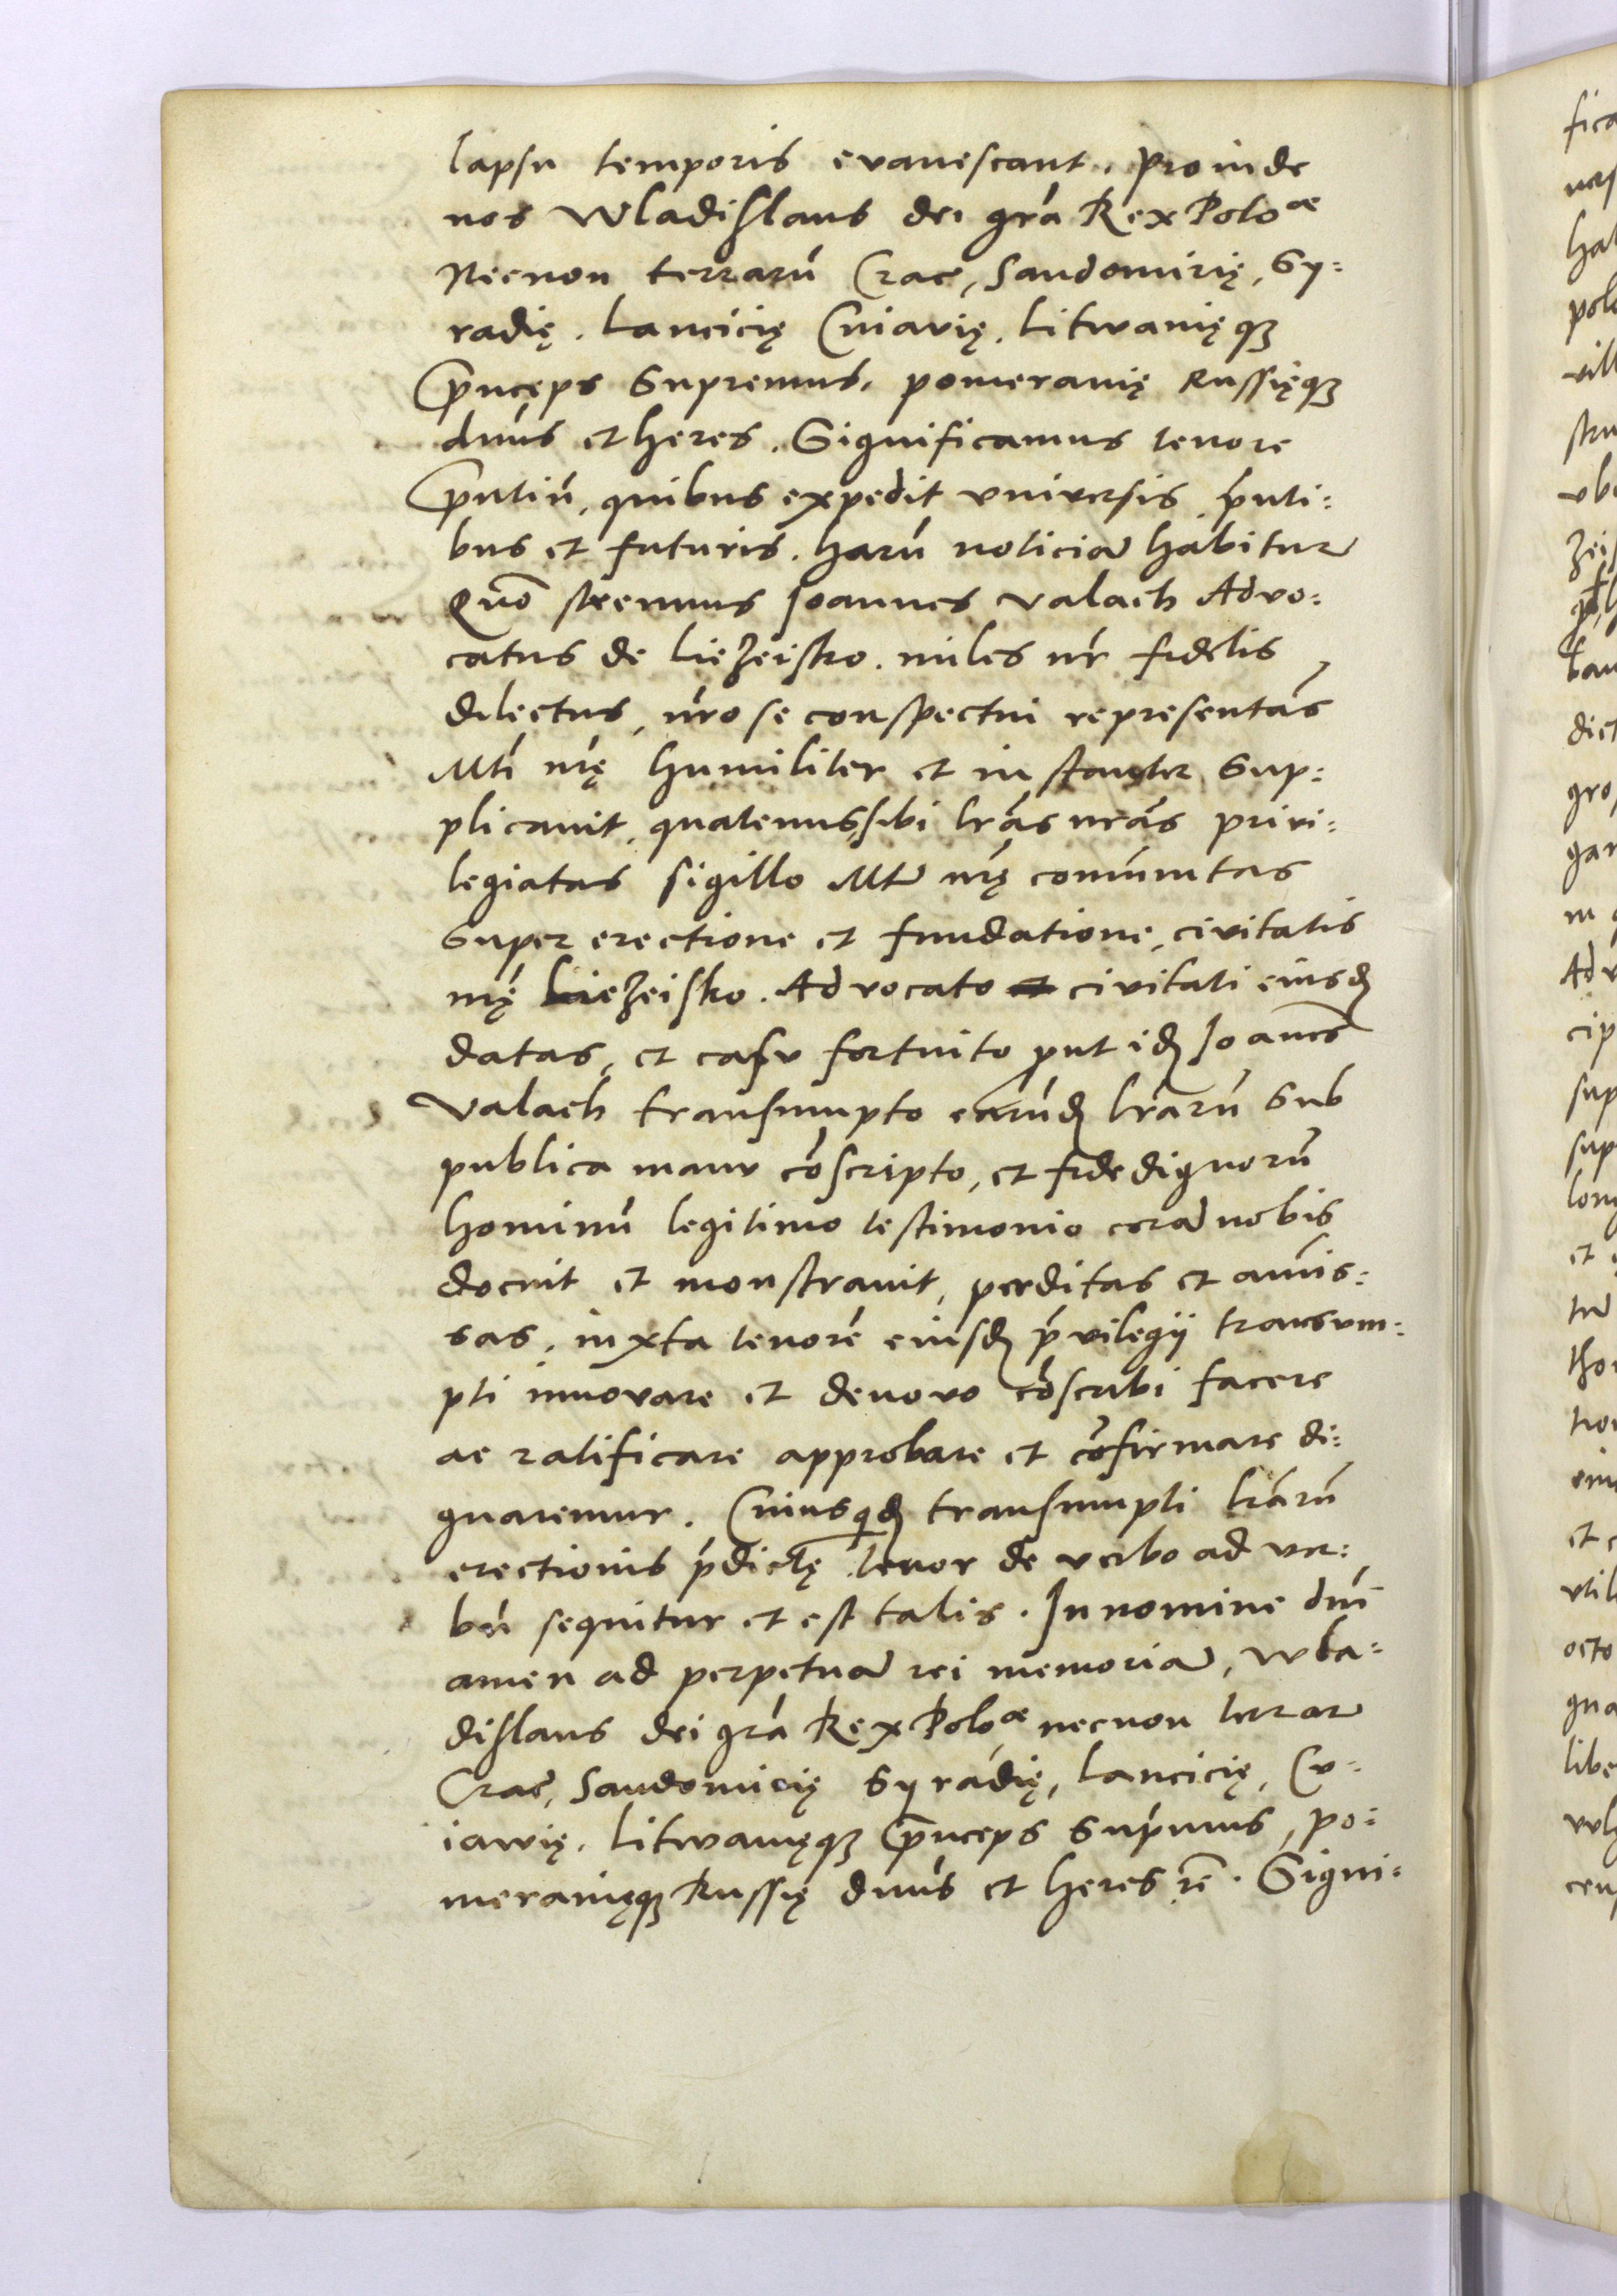 lapsu temporis evanescant. Proinde
nos Wladislaus dei gra͞ Rex Poloae
Necnon terrarū Crac̄, Sandomirię, Sy:
radię. Lancicię Cuiavię. Litwanięqꝫ
Prı̄nceps Supremus. pomeranię Russięqꝫ
dn̄us et heres. Significamus tenore
pn̄tiū, quibus expedit vniversis pn̄ti:
bus et futuris. harū noticiā habitur̄
Quō strenuus Joannes Valach Advo:
catus de Lieżeisko. miles nr̄ fidelis
dilectus, nr̄o se conspectui representās
Mtī nr̄ę humiliter et instanter Sup:
plicauit, quatenus sibi lr̄as nr̄as privi:
legiatas sigillo Mtı̄s nr̄ę com̄unitas
Super erectione et fundatione, civitatis
nr̄ę Lieżeisko. Advocato et civitati eiusd̄
datas, et casv fortuito prout id̄ Joanes̄
Valach transumpto earūd̄ lr̄arū Sub
publica manv cōscripto, et fide dignorū
hominū legitimo testimonio corā nobis
docuit et monstrauit, perditas et amis̄:
sas, iuxta tenorē eiusd̄ pr̄vilegij transum:
pti innovare et denovo cōscribi facere
ac ratificare approbare et cōfirmare di:
gnaremur. Cuiusqd̄ transumpti lr̄arū
erectionis pr̄dictę tenor de verbo ad ver:
bū sequitur et est talis. In nomine dn̄i
amen ad perpetuā rei memoriā, Wla:
dislaus dei gra͞ Rex Poloae necnon terrar̄
Crac̄, Sandomirię Syradię, Lancicię, Cv:
iawię. Litwanięqꝫ Prı̄nceps Supr̄mus, po:
meranięqꝫ Russię dn̄us et heres rē. Signi: